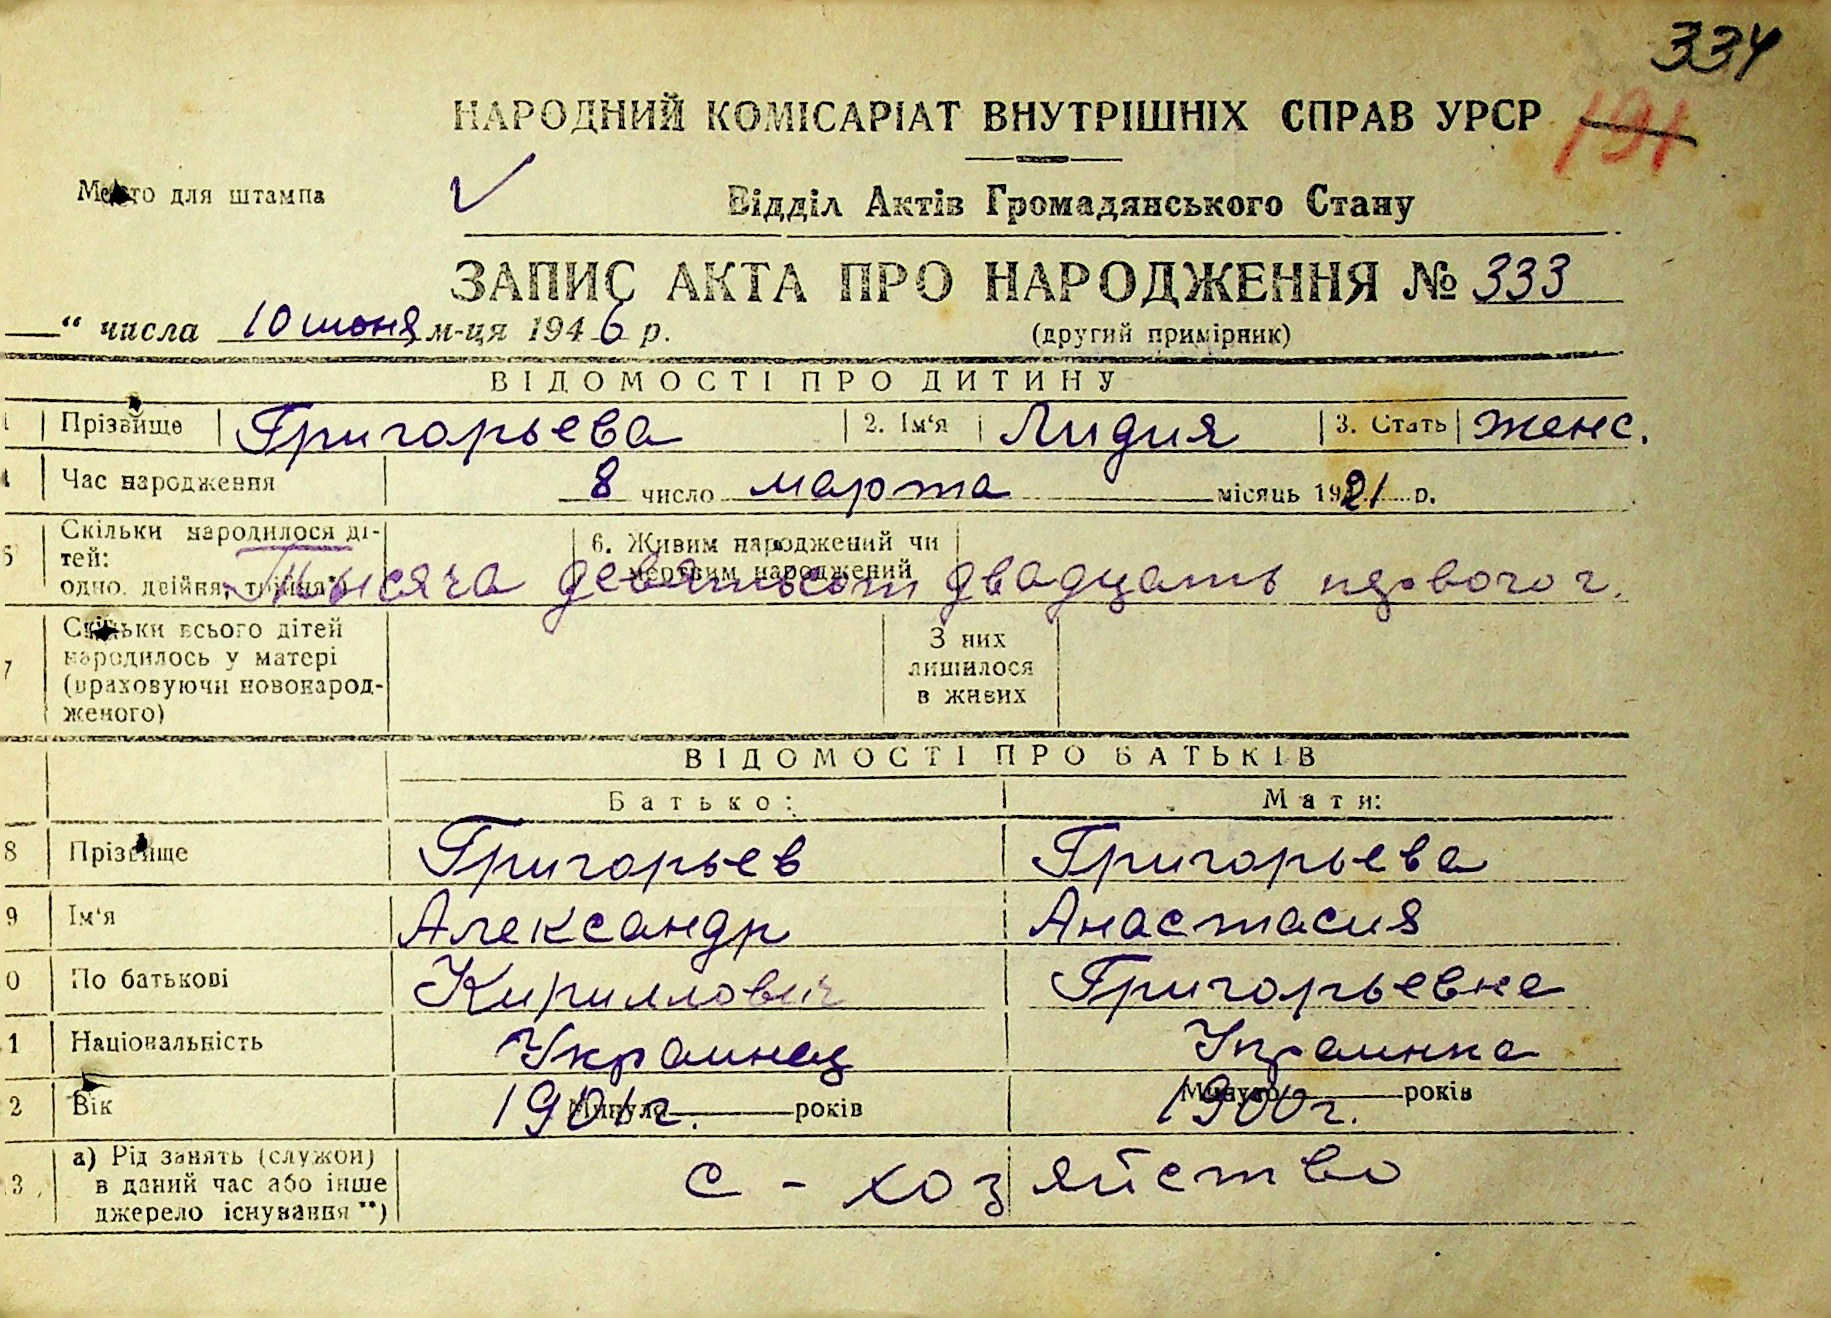 334
НАРОДНИЙ КОМІСАРІАТ ВНУТРІШНІХ СПРАВ УРСР 191
Место для штампа
Відділ Актів Громадянського Стану
ЗАПИС АКТА ПРО НАРОДЖЕННЯ № 333
“ числа 10 июня м-ця 1946 р. (другий примірник)
ВІДОМОСТІ ПРО ДИТИНУ
1 Прізвище Григорьева 2. Ім‘я Лидия 3. Стать женс.
4 Час народження 8 число марта місяць 1921 р.
5 Скільки народилося ді-
тей:
одно, двійня, трійня*) 6. Живим народжений чи
мертвим народжений
Тысяча девятьсот двадцать первого г.
7 Скільки всього дітей
народилось у матері
(враховуючи новонарод-
женого)
З них
лишилося
в живих
ВІДОМОСТІ ПРО БАТЬКІВ
Батько: Мати:
8 Прізвище Григорьев Григорьева
9 Ім‘я Александр Анастасия
0 По батькові Кириллович Григорьевна
1 Національність Украинец Украинка
2 Вік 1901 г. Минуло років 1900 г. Минуло років
3 а) Рід занять (служби)
в даний час або інше
джерело існування **)
с - хозяйство